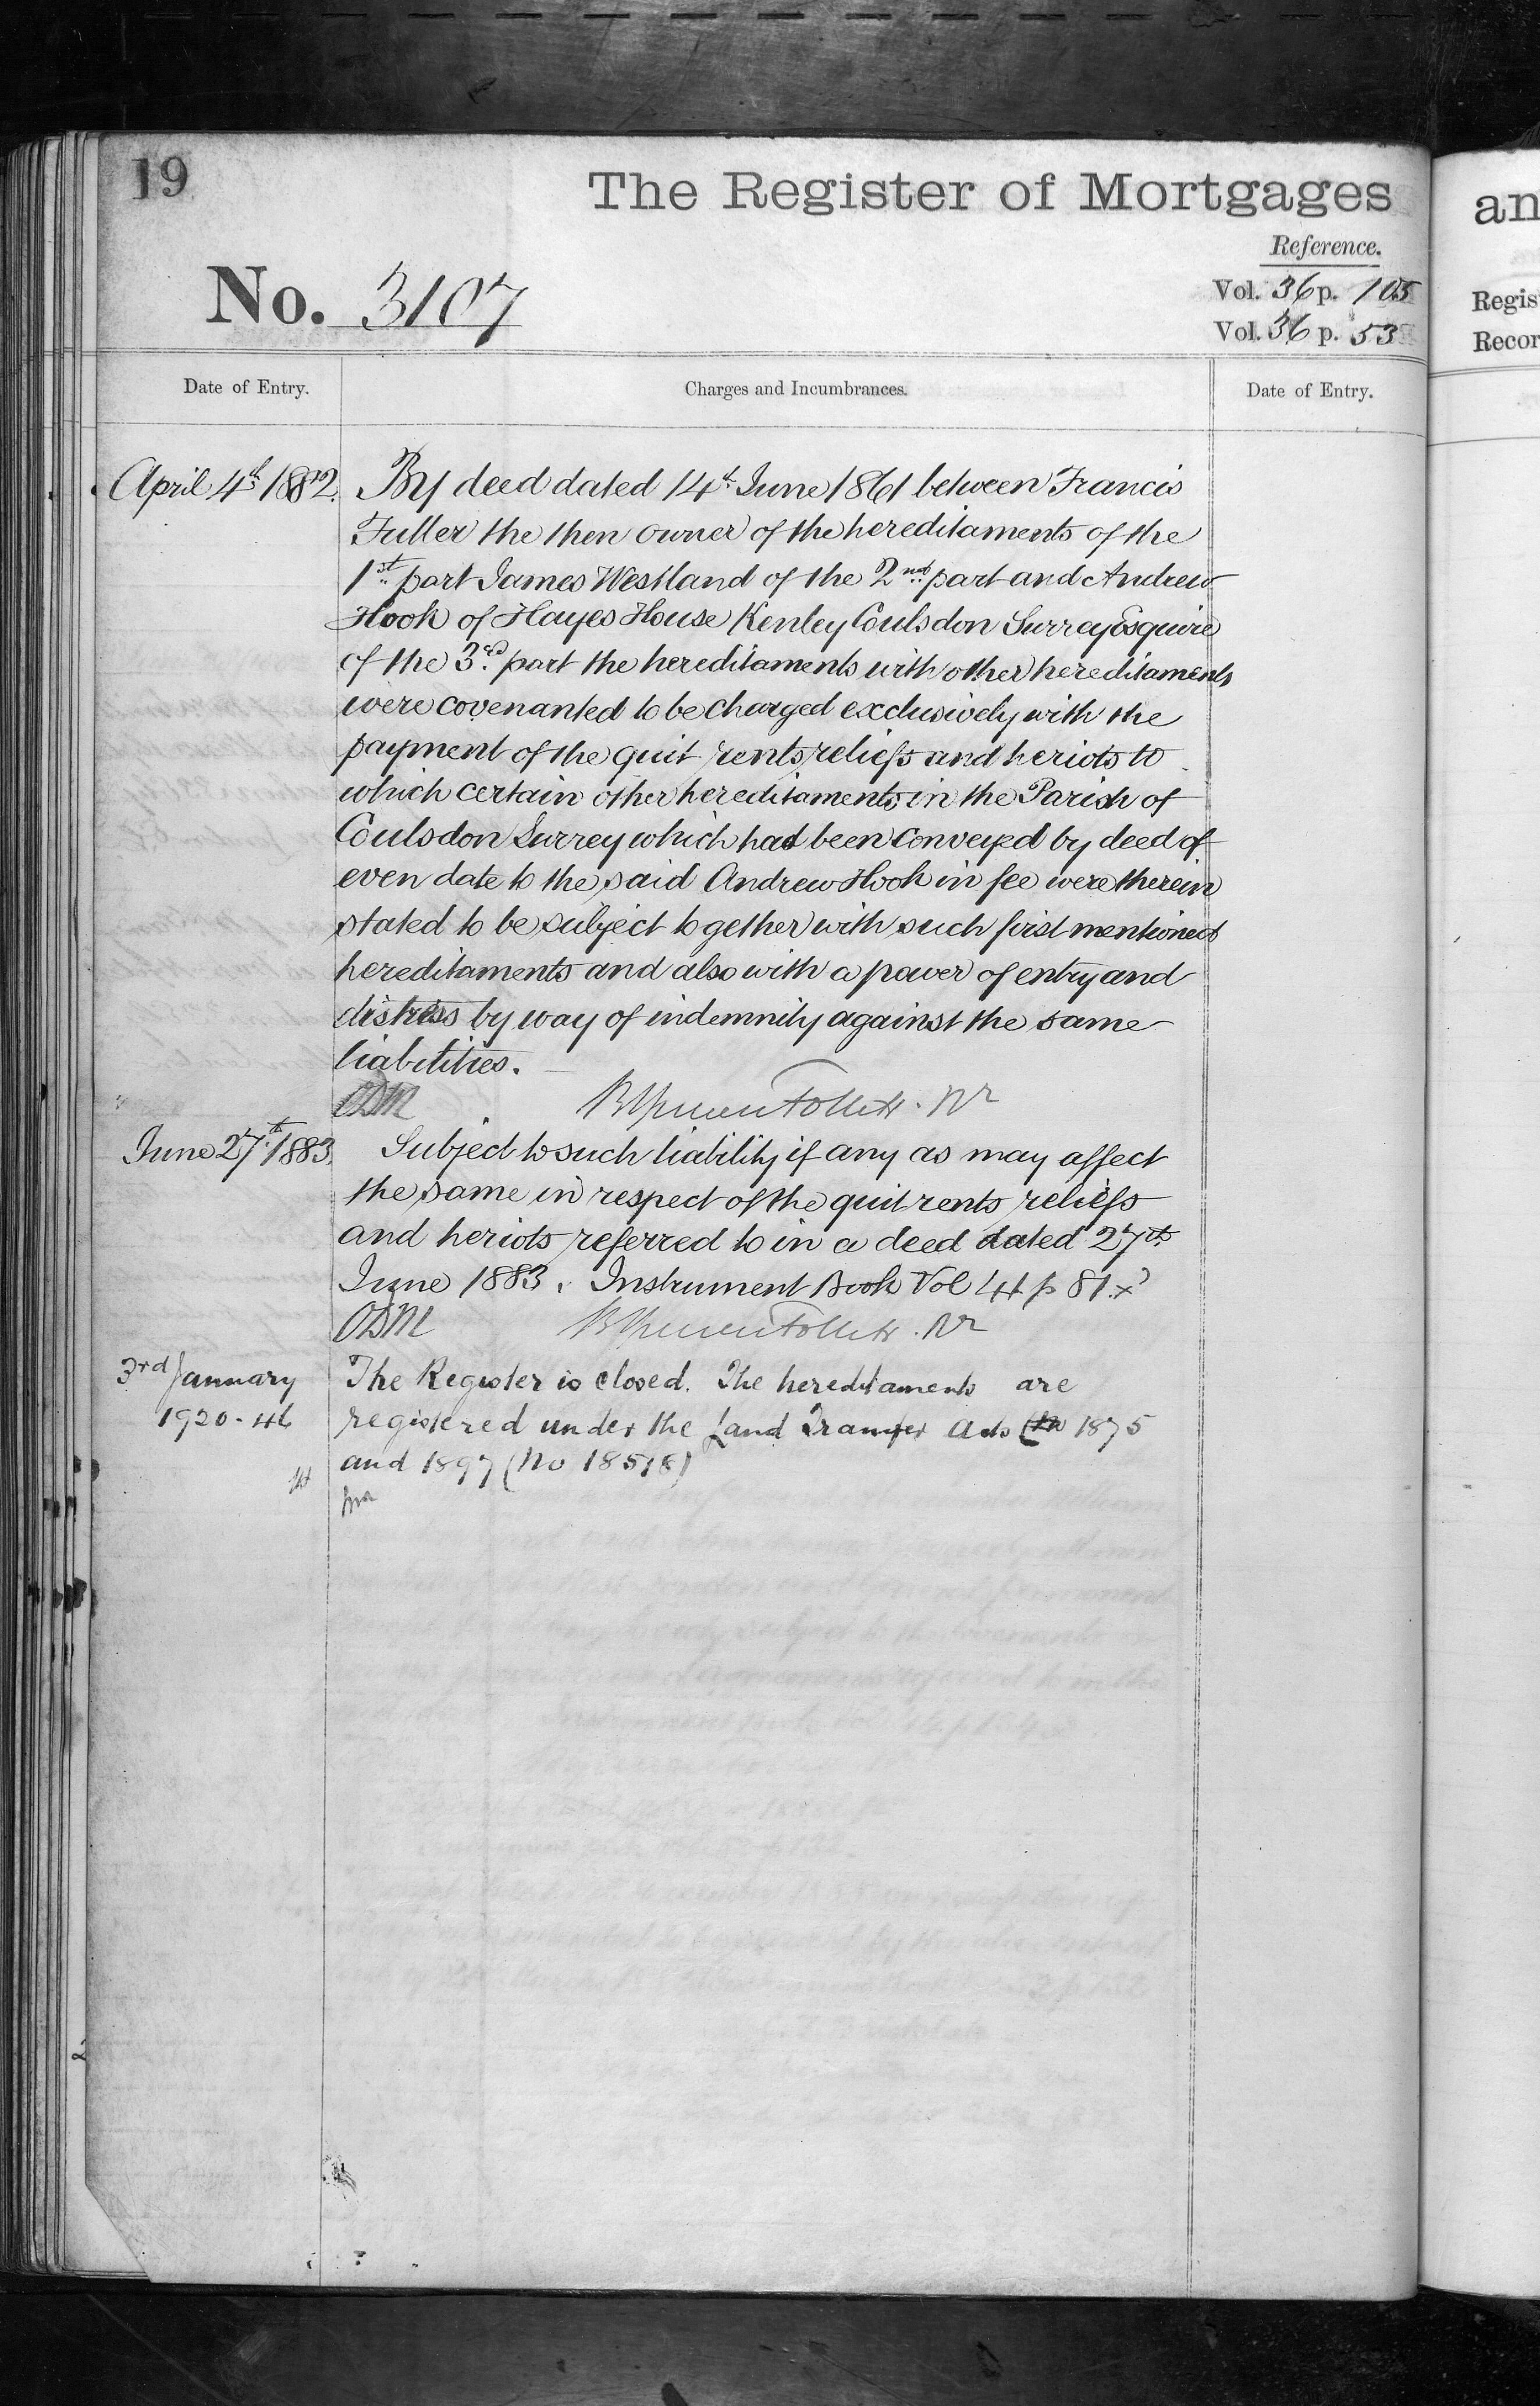 19
The Register of Mortgages
Reference.
No. 3107
Vol. 36 p. 105
Vol. 36 p. 53
Date of Entry.
Charges and Incumbrances.
Date of Entry.
April 4th 1882.
By deed dated 14th June 1861 between Francis
Fuller the then owner of the hereditaments of the
1st part James Westland of the 2nd part and Andrew
Hook of Hayes House Kenley Coulsdon Surrey Esquire
of the 3rd part the hereditaments with other hereditaments
were covenanted to be charged exclusively with the
payment of the quit rents reliefs and heriots to
which certain other hereditaments in the Parish of
Coulsdon Surrey which had been conveyed by deed of
even date to the said Andrew Hook in fee were therein
stated to be subject together with such first mentioned
hereditaments and also with a power of entry and
distress by way of indemnity against the same
liabilities.
ODM
June 27th 1883.
Subject to such liability if any as may affect
the same in respect of the quit rents reliefs
and heriots referred to in a deed dated 27th
June 1883. Instrument Book Vol 44 p 81.x
ODM
3rd January
1920-46
The Register is closed. The hereditaments are
registered under the Land Transfer Acts 1875
and 1897 (No 18518)
an
Regis
Recor